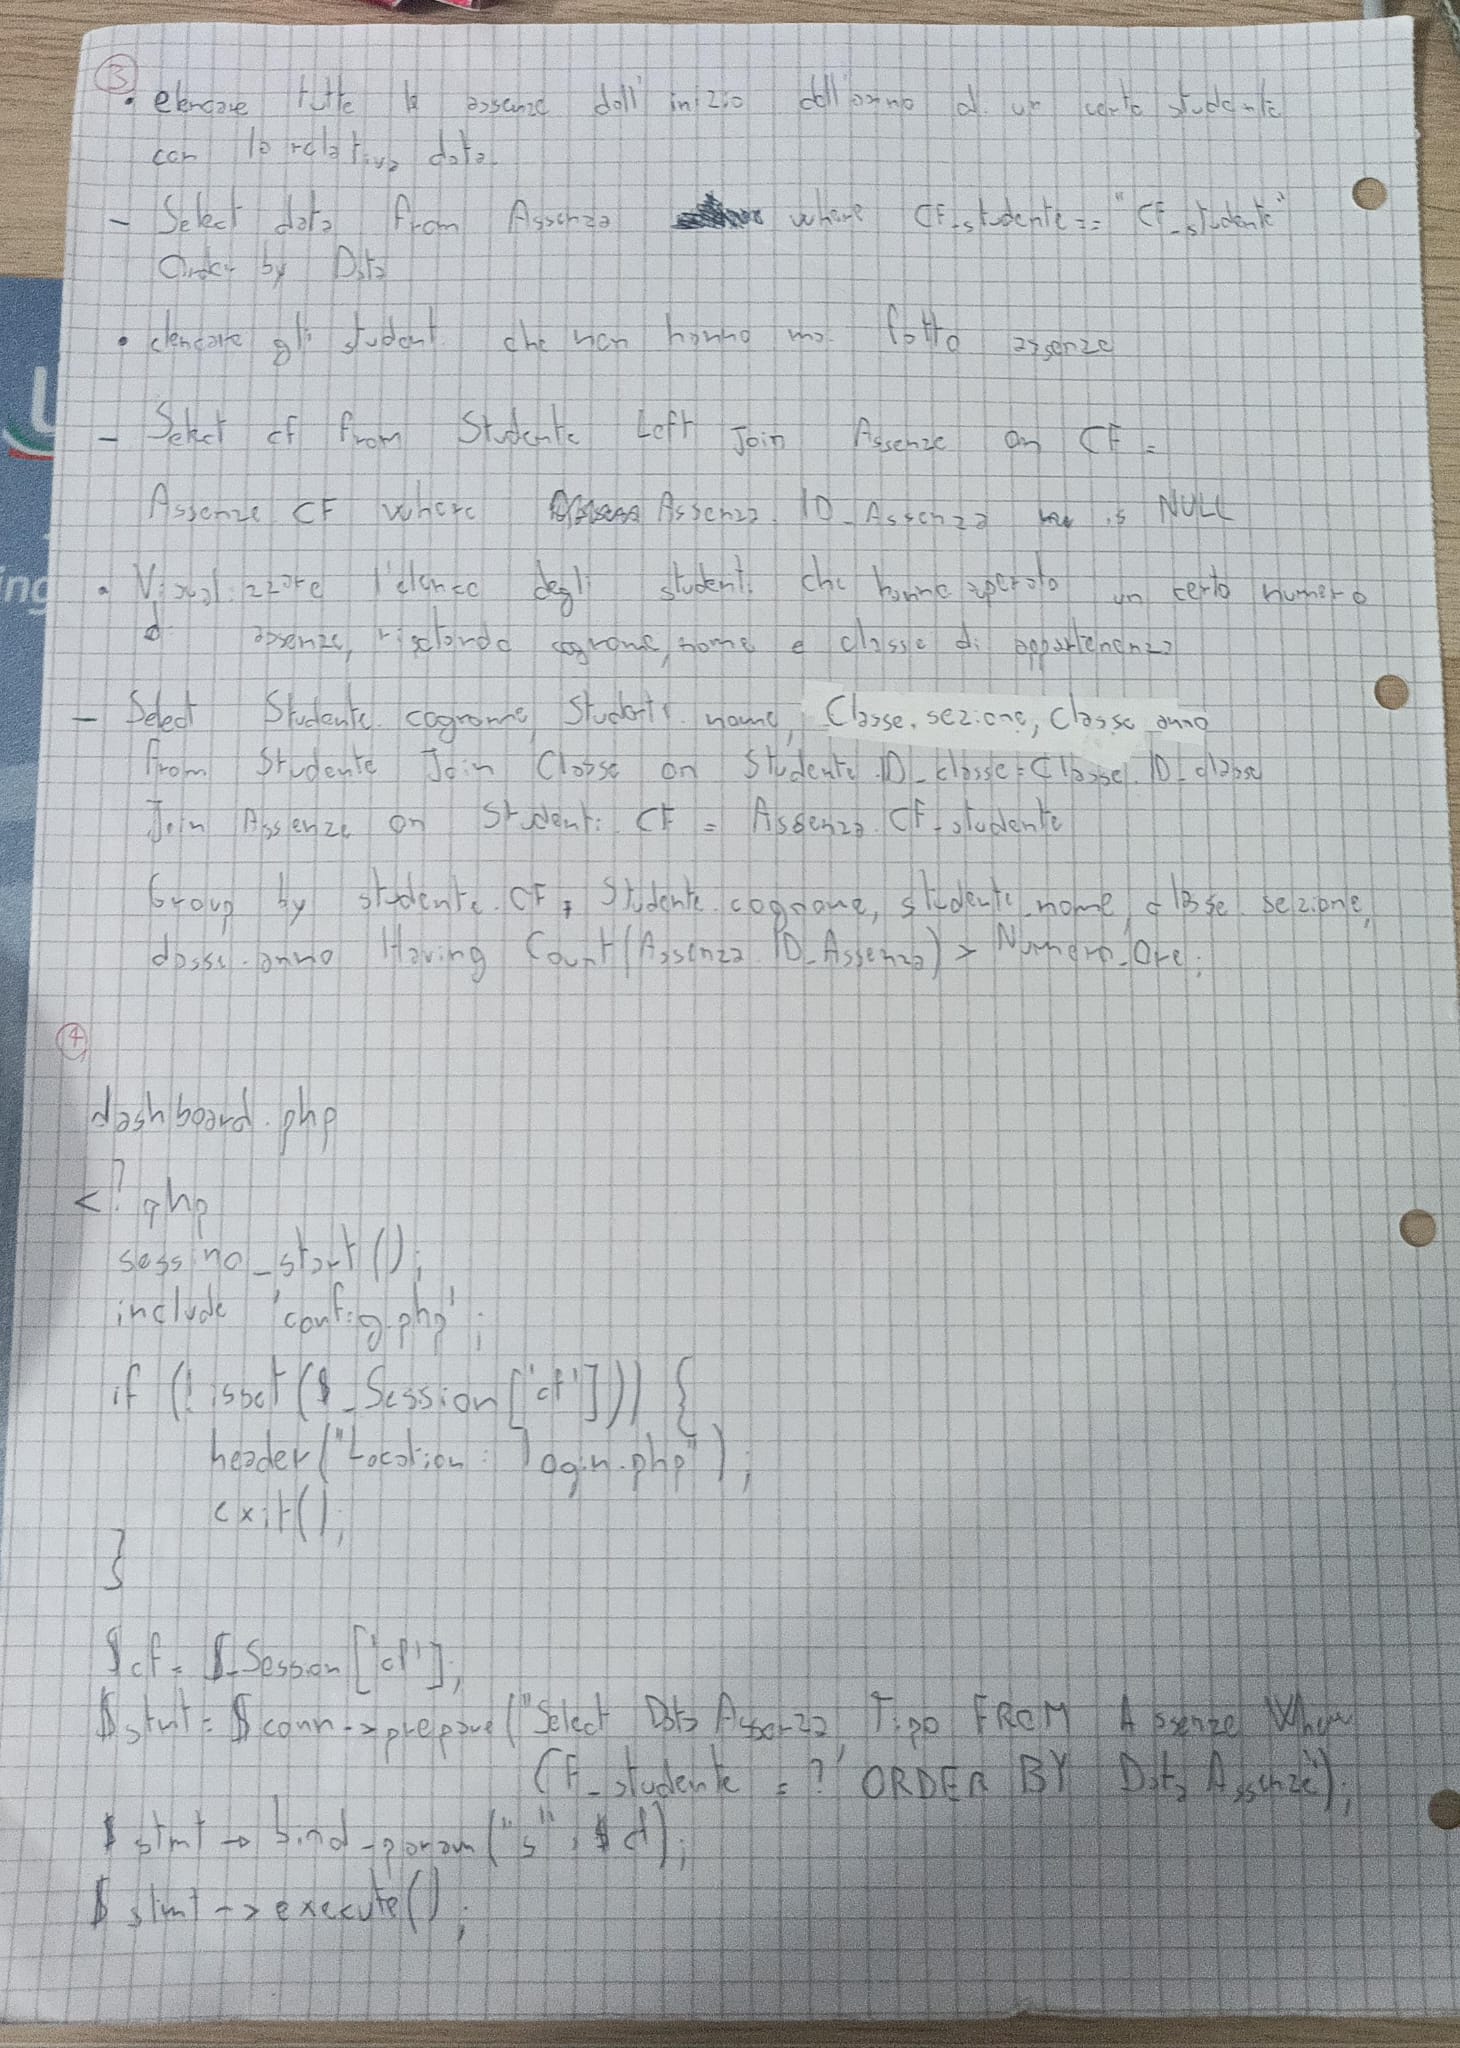 3
• elencare tutte le assenze dall'inizio dell'anno di un certo studente
con la relativa data.
- Select data from Assenza where CF_studente == "CF_studente"
Order by Data
• elencare gli studenti che non hanno mai fatto assenze
- Select cf from Studente Left Join Assenze on CF =
Assenze CF where Assenza. ID_Assenza is NULL
• Visualizzare l'elenco degli studenti che hanno superato un certo numero
di assenze, riportando cognome, nome e classe di appartenenza
- Select Studente. cognome, Studente. nome, Classe. sezione, Classe anno
From Studente Join Classe on Studente.ID_classe = Classe. ID_classe
Join Assenze on Studenti. CF = Assenza. CF_studente
Group by studente. CF, Studente. cognome, studente. nome, classe. sezione,
classe. anno Having Count(Assenza. ID_Assenza) > Numero_Ore;
4
dashboard.php
<?php
sessino_start();
include 'config.php';
if (!isset($_Session['cf'])) {
header("Location: login.php");
exit();
}
$cf = $_Session['cf'];
$stmt = $conn->prepare("Select Data Assenza, Tipo FROM Assenze Where
CF_studente = ? ORDER BY Data Assenze");
$stmt -> bind_param("s", $cf);
$stmt -> execute();
ing